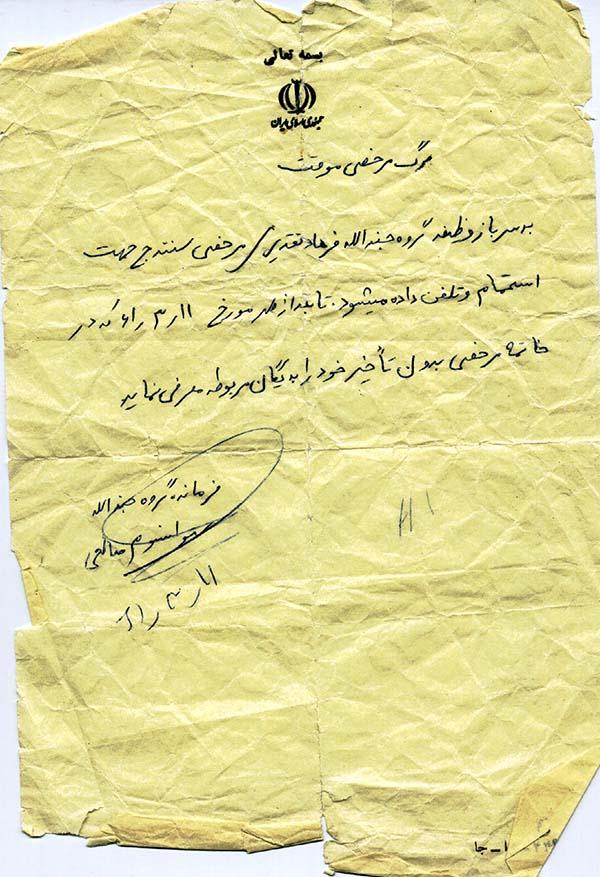 بسمه تعالی
جمهوری اسلامی ایران
برگ مرخصی موقت
به سرباز وظیفه گروه جندالله فرهاد تقدیری مرخصی سنندج جهت
استحمام و تلفن داده میشود. تا بعد از ظهر مورخ ۱۱ر۳ر۶۱ که در
خاتمه مرخصی بدون تأخیر خود را به یگان مربوطه معرفی نماید
فرمانده گروه جندالله
صالحی
۱۱ر۳ر۶۱
۱ـ جا